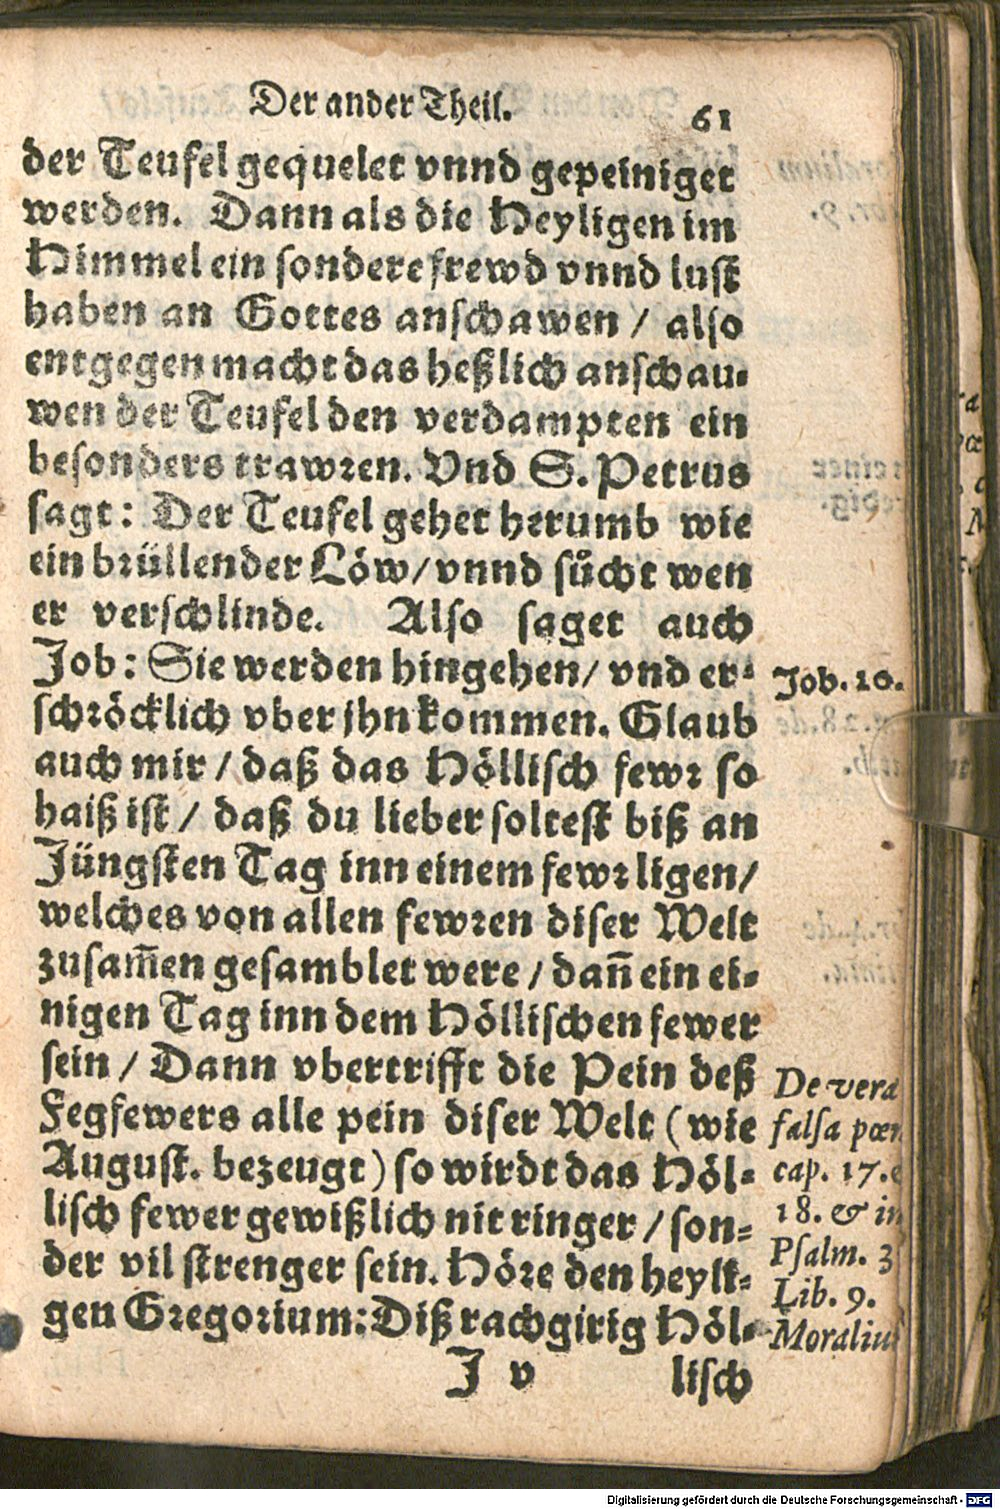 Der ander Theil.
61
der Teufel gequelet vnnd gepeiniget
werden. Dann als die Heyligen im
Himmel ein sondere frewd vnnd lust
haben an Gottes anschawen / also
entgegen macht das heßlich anschau-
wen der Teufel den verdampten ein
besonders trawren. Vnd S. Petrus
sagt: Der Teufel gehet herumb wie
ein brüllender Löw/vnnd sůcht wen
er verschlinde. Also saget auch
Job: Sie werden hingehen/ vnd er-
schröcklich vber jhn kommen. Glaub
auch mir / daß das Höllisch fewr so
haiß ist / daß du lieber soltest biß an
Jüngsten Tag inn einem fewr ligen/
welches von allen fewren diser Welt
zusam̃en gesamblet were / dañ ein ei-
nigen Tag inn dem Höllischen fewer
sein / Dann vbertrifft die Pein deß
Fegfewers alle pein diser Welt (wie
August. bezeugt) so wirdt das Höl-
lisch fewer gewißlich nit ringer / son-
der vil strenger sein. Höre den heyli-
gen Gregorium: Diß rachgirig Höl-
J v
lisch
Job. 10.
De vera
falsa pœn
cap. 17. e
18. & in
Psalm. 3
Lib. 9.
Moraliu
Digitalisierung gefördert durch die Deutsche Forschungsgemeinschaft - DFG